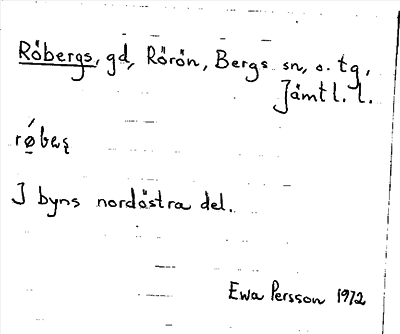 Röbergs, gd, Rörön, Bergs sn, o. tg,
Jämtl. l.
I byns nordöstra del.
Ewa Persson 1972